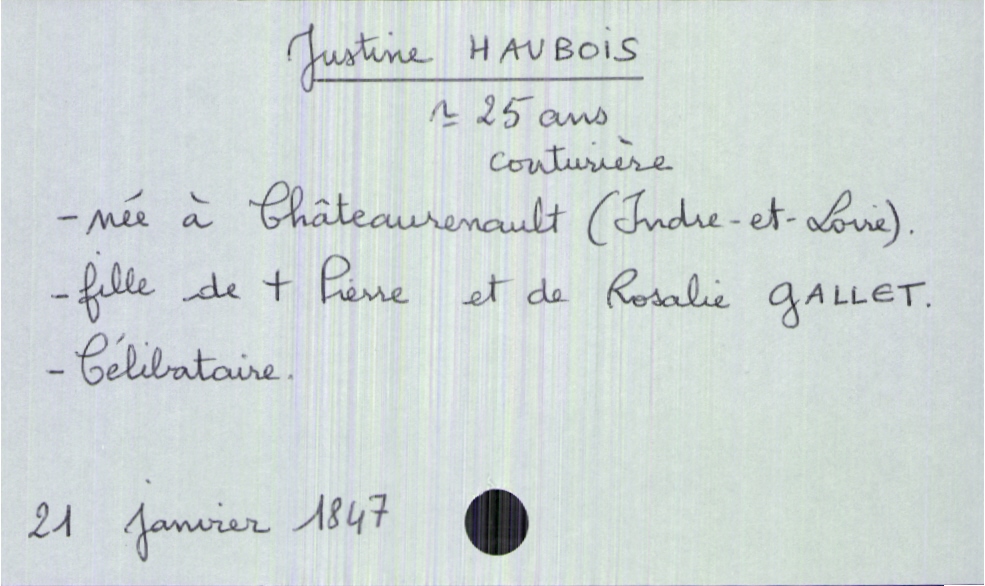 Justine HAUBOIS
≃ 25 ans
couturière
- née à Châteaurenault (Indre-et-Loire).
- fille de + Pierre et de Rosalie GALLET.
- Célibataire.
21 janvier 1847